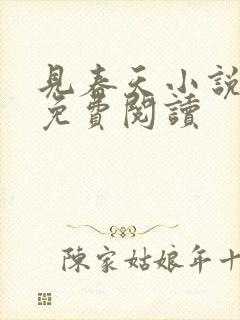 見春天小説
免費閱讀
陳家姑娘年十